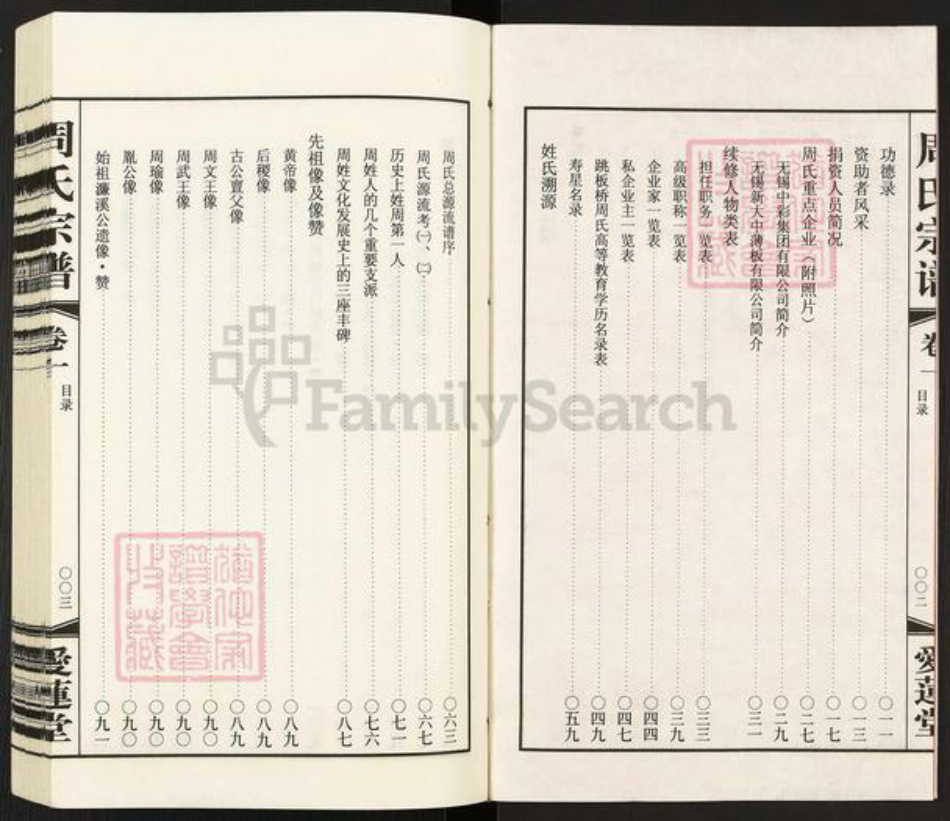 周氏宗谱 卷一 目录 〇〇二 愛蓮堂
功德录 〇一一
资助者风采 〇一三
捐资人员简况 〇一七
周氏重点企业（附照片） 〇二七
无锡中彩集团有限公司简介 〇二九
无锡新大中薄板有限公司简介 〇三一
续修人物类表
担任职务一览表 〇三三
高级职称一览表 〇三九
企业家一览表 〇四四
私企业主一览表 〇四七
跳板桥周氏高等教育学历名录表 〇四九
寿星名录 〇五九
姓氏溯源
周氏总源流谱序 〇六三
周氏源流考㈠、㈡ 〇六七
历史上姓周第一人 〇七一
周姓人的几个重要支派 〇七六
周姓文化发展史上的三座丰碑 〇八七
先祖像及像赞
黄帝像 〇八九
后稷像 〇八九
古公亶父像 〇八九
周文王像 〇九〇
周武王像 〇九〇
周瑜像 〇九〇
胤公像 〇九〇
始祖濂溪公遗像·赞 〇九一
周氏宗谱 卷一 目录 〇〇三 愛蓮堂
FamilySearch